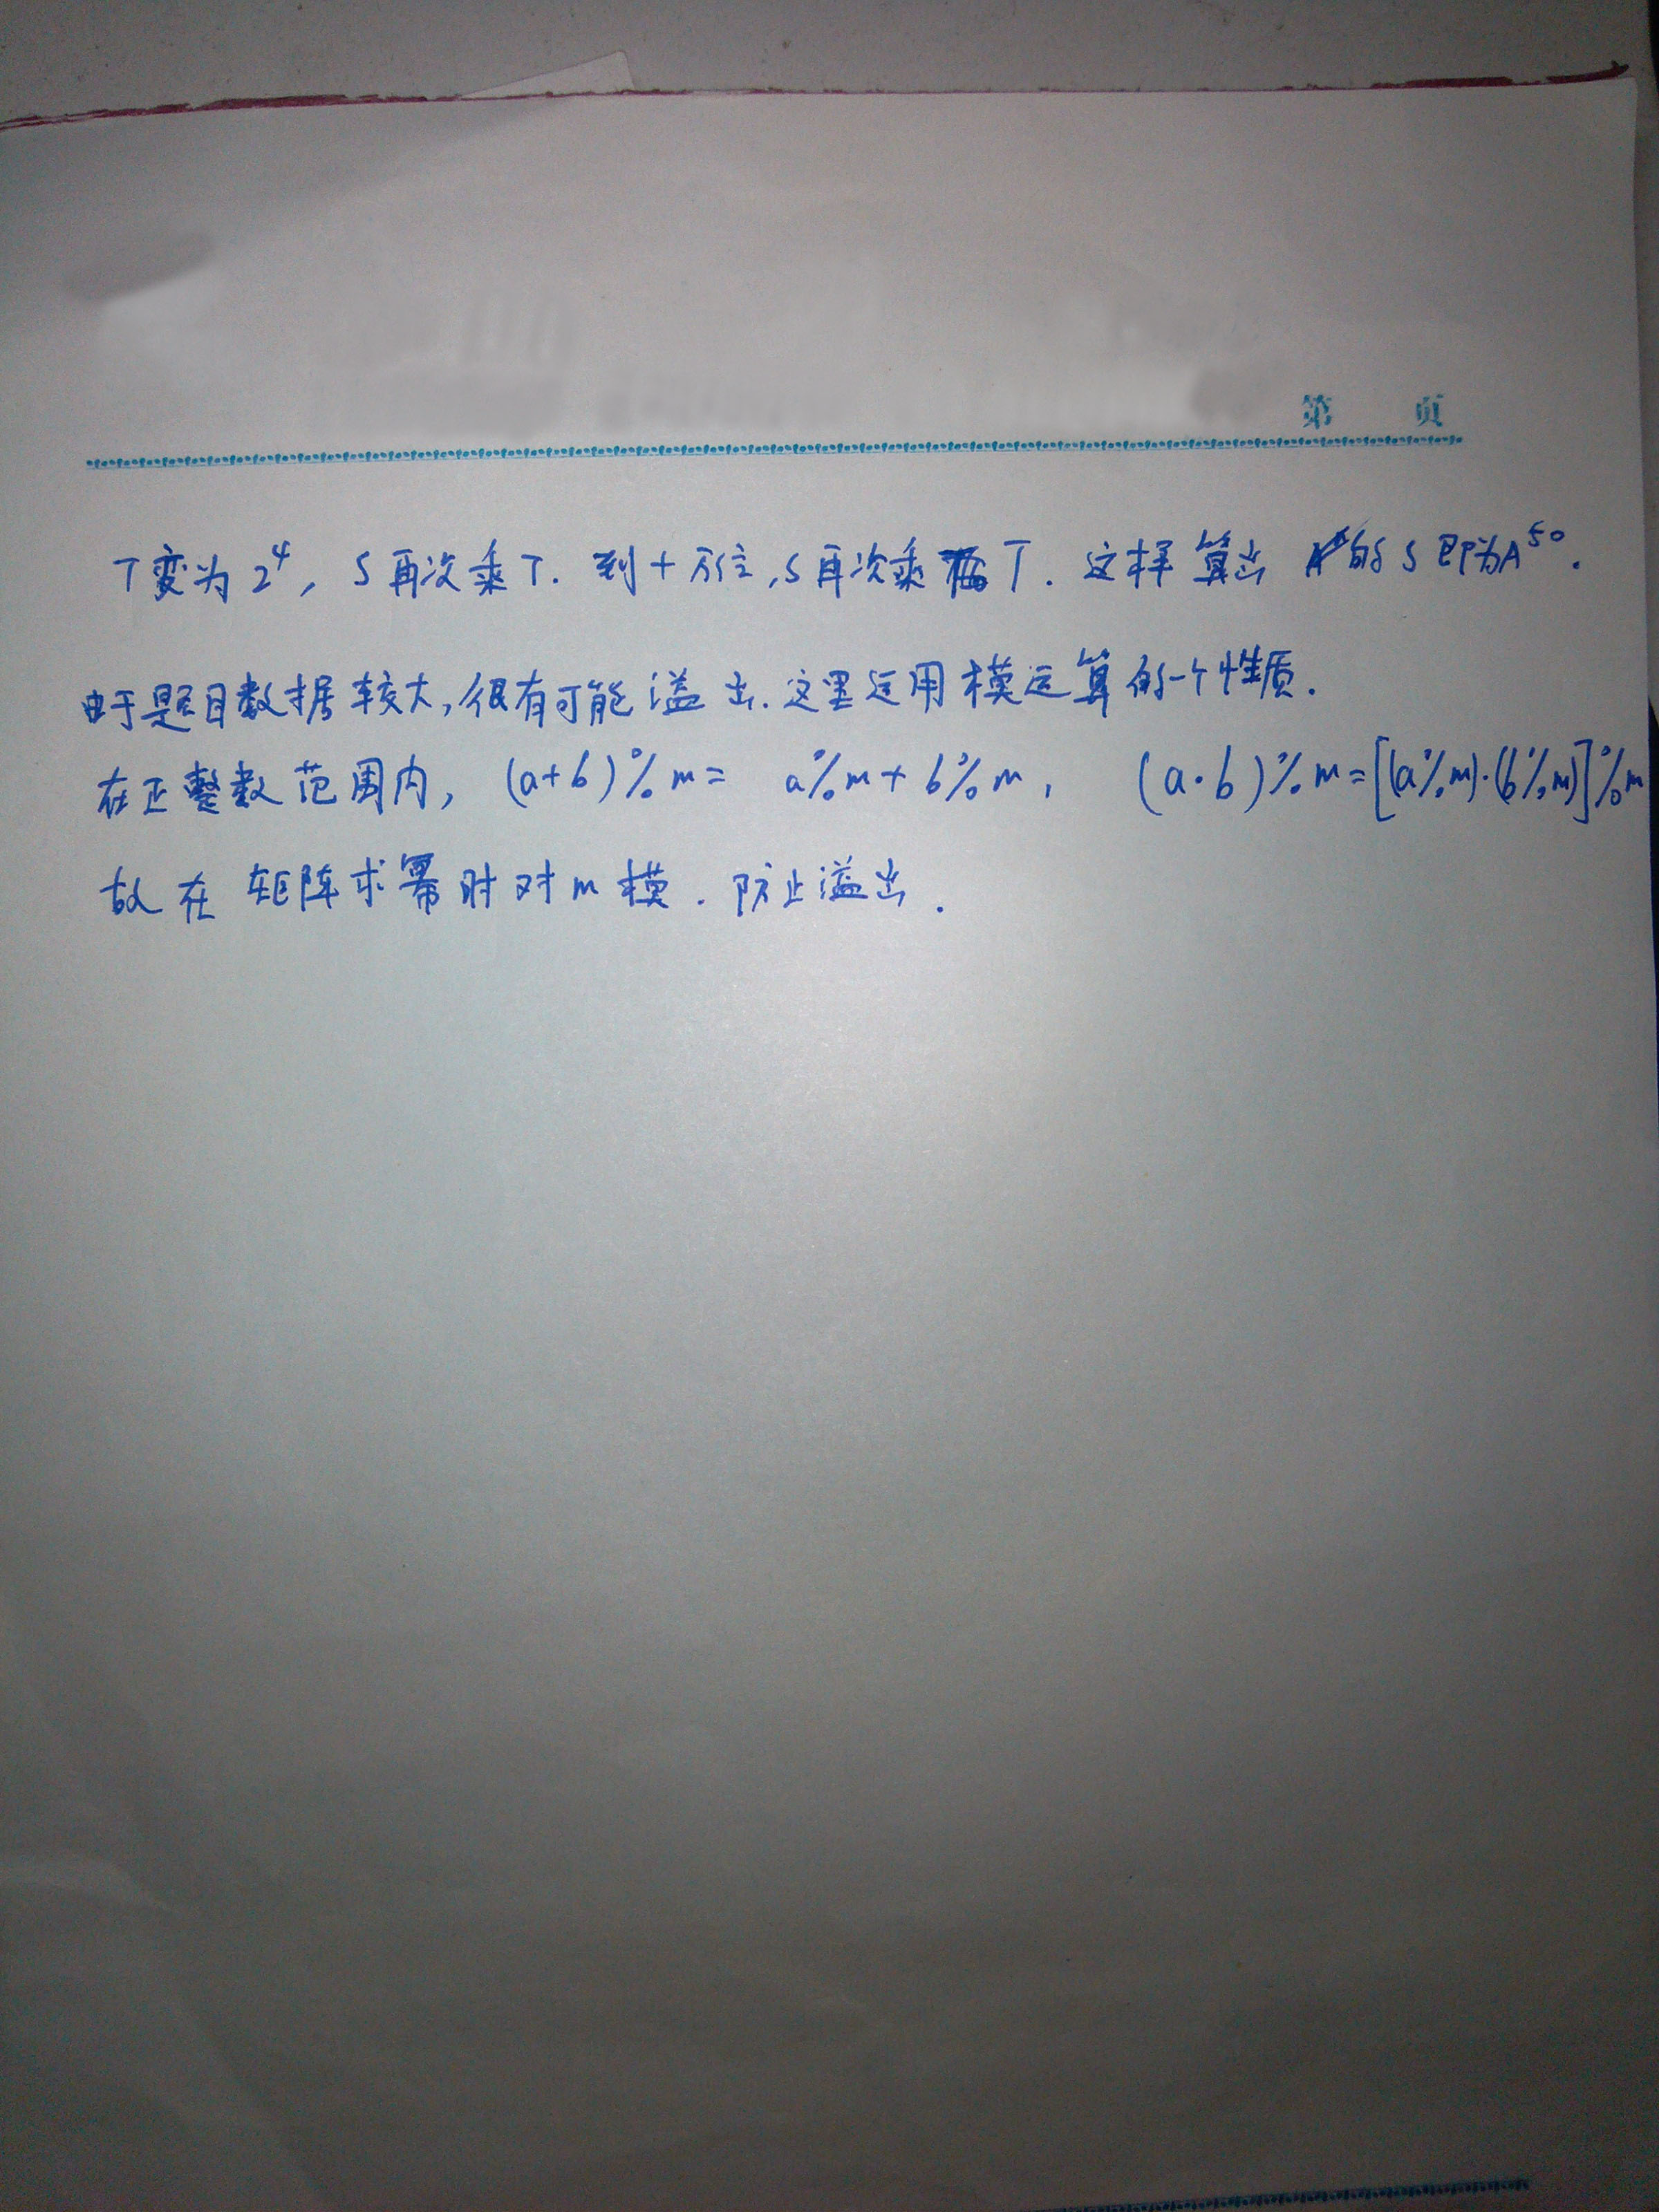 第 页
T变为2⁴, S再次乘T. 到十万位, S再次乘T. 这样算出的S即为A⁵⁰.
由于题目数据较大, 很有可能溢出. 这里运用模运算的一个性质.
在正整数范围内, (a+b)%m= a%m+b%m, (a·b)%m=[(a%m)·(b%m)]%m
故在矩阵求幂时对m模. 防止溢出.